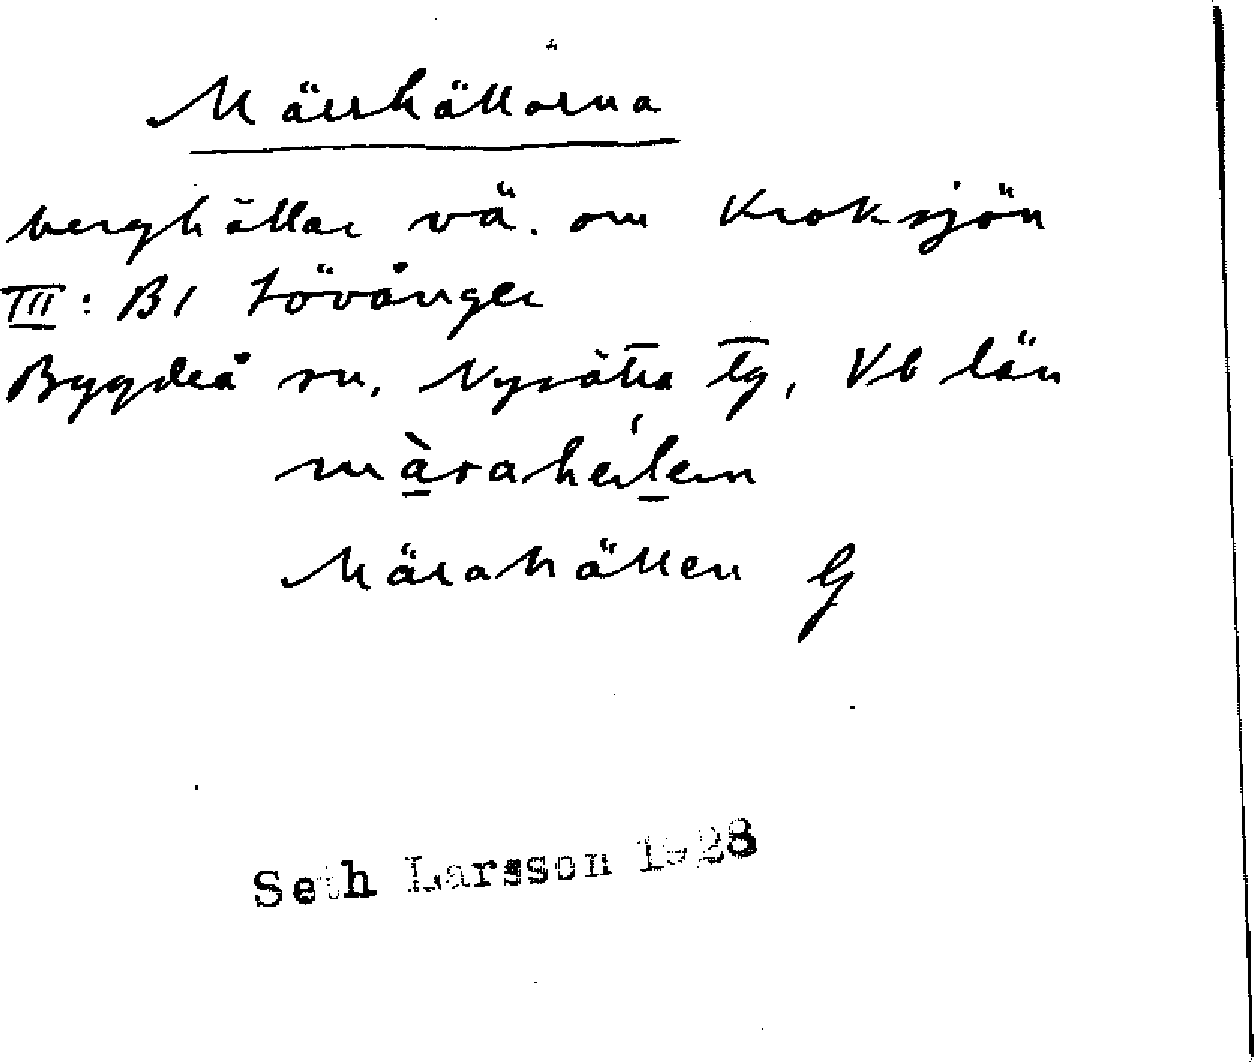 Märrhällorna
berghällar vä. om Kroksjön
III: B1 Lövånger
Bygdeå sn, Nysätra tg, Vb län
Märahällen G
Seth Larsson 1928